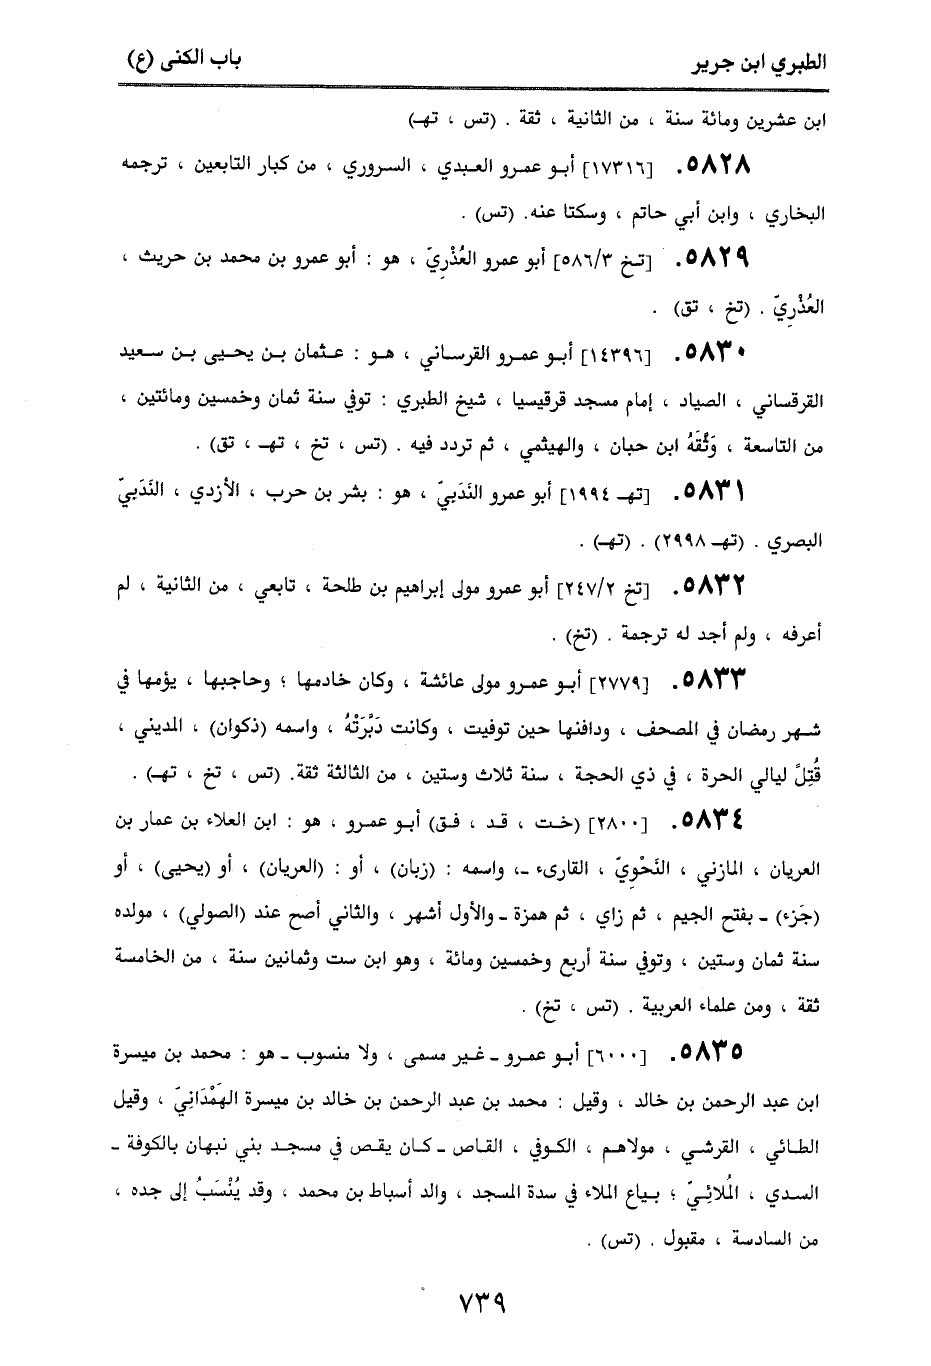 الطبري ابن جرير
باب الكنى (ع)
ابن عشرين ومائة سنة ، من الثانية ، ثقة . (تس ، تهـ)
٥٨٢٨. [١٧٣١٦] أبـو عمرو العـبدي ، السـروري ، من كبار التابعين ، ترجمه
البخاري ، وابن أبي حاتم ، وسكتا عنه. (تس) .
٥٨٢٩. [تـخ ٥٨٦/٣] أبو عمرو العُذْرِيّ ، هو : أبو عمرو بن محمد بن حريث ،
العُذْرِيّ . (تخ ، تق) .
٥٨٣٠. [١٤٣٩٦] أبـو عمـرو القرسـاني ، هـو : عـثمان بـن يحـيى بـن سـعيد
القرقساني ، الصياد ، إمام مسجد قرقيسيا ، شيخ الطبري : توفي سنة ثمان وخمسين ومائتين ،
من التاسعة ، وَثَّقَهُ ابن حبان ، والهيثمي ، ثم تردد فيه . (تس ، تخ ، تهـ ، تق) .
٥٨٣١. [تهـ ١٩٩٤] أبو عمرو النَدَبيّ ، هو : بشر بن حرب ، الأزدي ، النَدَبيّ
البصري . (تهـ ٢٩٩٨) . (تهـ) .
٥٨٣٢. [تخ ٢٤٧/٢] أبو عمرو مولى إبراهيم بن طلحة ، تابعي ، من الثانية ، لم
أعرفه ، ولم أجد له ترجمة . (تخ) .
٥٨٣٣. [٢٧٧٩] أبـو عمـرو مولى عائشة ، وكان خادمها ؛ وحاجبها ، يؤمها في
شـهر رمضان في المصحف ، ودافنها حين توفيت ، وكانت دَبَّرَتْهُ ، واسمه (ذكوان) ، المديني ،
قُتِلَ ليالي الحرة ، في ذي الحجة ، سنة ثلاث وستين ، من الثالثة ثقة. (تس ، تخ ، تهـ) .
٥٨٣٤. [٢٨٠٠] (خـت ، قد ، فـق) أبـو عمـرو ، هو : ابن العلاء بن عمار بن
العريان ، المازني ، النَحْوِيّ ، القارىء -، واسمه : (زبان) ، أو : (العريان) ، أو (يحيى) ، أو
(جَزء) - بفتح الجيم ، ثم زاي ، ثم همزة - والأول أشهر ، والثاني أصح عند (الصولي) ، مولده
سنة ثمان وستين ، وتوفي سنة أربع وخمسين ومائة ، وهو ابن ست وثمانين سنة ، من الخامسة
ثقة ، ومن علماء العربية . (تس ، تخ) .
٥٨٣٥. [٦٠٠٠] أبـو عمـرو - غـير مسمى ، ولا منسوب - هو : محمد بن ميسرة
ابن عبد الرحمن بن خالد ، وقيل : محمد بن عبد الرحمن بن خالد بن ميسرة الهَمْدَانِيّ ، وقيل
الطـائي ، القرشـي ، مولاهـم ، الكـوفي ، القـاص - كـان يقـص في مسجـد بني نبهان بالكوفة -
السدي ، المُلائِـيّ ؛ بـياع الملاء في سدة المسجد ، والد أسباط بن محمد ، وقد يُنْسَبُ إلى جده ،
من السادسة ، مقبول . (تس) .
٧٣٩